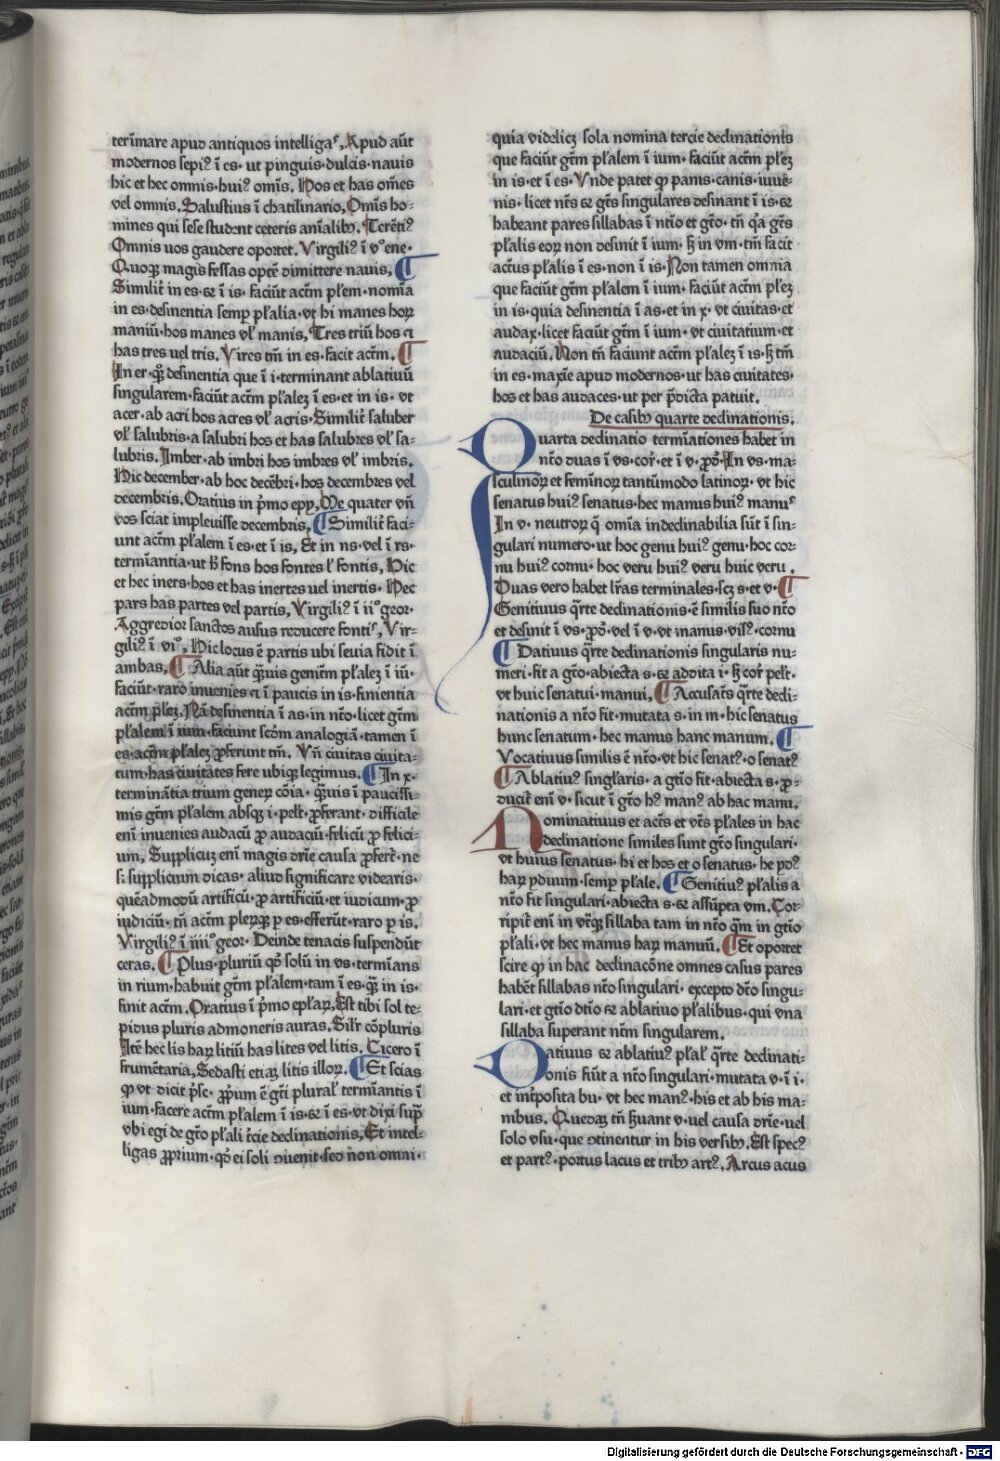 terīmare apud antiquos intelligaˢ. Apud aūt
modernos sepiꝰ ī es. ut pinguis. dulcis. nauis
hic et hec omnis. huiꝰ om̄is. Hos et has om̄es
vel omnis. Salustius ī chatilinario. Om̄is ho⸗
mines qui sese student ceteris aīalibꝫ. Terētiꝰ
Omnis uos gaudere oportet. Virgiliꝰ ī vᵒ ene.
Quoꝫ magis fessas optē dimittere nauis. ¶
Similit̄ in es. et ī is. faciūt actm̄ pl̄em. nomīa
in es. desinentia semp̱ pl̄alia. vt hi manes hoꝝ
maniū. hos manes vl̓ manis. Tres triū hos ⁊
has tres uel tris. Vires tm̄ in es. facit actm̄. ¶
In er. qꝫ̄ desinentia que ī i. terminant ablatiuū
singularem. faciūt actm̄ pl̄aleꝫ ī es. et in is. vt
acer. ab acri hos acres vl̓ acris. Similit̄ saluber
vl̓ salubris. a salubri hos et has salubres vl̓ sa⸗
lubris. Imber. ab imbri hos imbres vl̓ imbris.
Hic december. ab hoc decēbri. hos decembres vel
decembris. Oratius in p̓mo epp̱. Me quater vn̄
vos sciat impleuisse decembris. ¶ Similit̄ faci⸗
unt actm̄ pl̄alem ī es. et ī is. Et in ns. vel ī rs.
termīantia. ut h̓ fons hos fontes l̓ fontis. Hic
et hec iners. hos et has inertes vel inertis. Hec
pars has partes vel partis. Virgiliꝰ ī iiᵒ geor.
Aggredior sanctos ausus reducere fontiˢ. Vir⸗
giliꝰ ī viᵒ. Hic locus ē partis ubi se uia fidit ī
ambas. ¶ Alia aūt qꝫ̄uis genitm̄ pl̄aleꝫ ī iū.
faciūt. raro inuenies ⁊ ī paucis in is. finientia
actm̄ pl̄eꝫ. Nā desinentia ī as. in nt̄o. licet gt̄m
pl̄alem ī ium. faciunt scd̄m analogiā. tamen ī
es. actm̄ pl̄aleꝫ ꝓferunt tm̄. Vn̄ ciuitas ciuita⸗
tum. has ciuitates fere ubiqꝫ legimus. ¶ In x.
terminātia trium geneꝝ cōia. qꝫ̄uis ī pauciſſi⸗
mis gtm̄ pl̄alem absqꝫ i. pel̓t. ꝓferant. difficile
enī inuenies audacū ꝓ audaciū. felicū ꝓ felici⸗
um. Supplicuꝫ enī magis dr̄ie causa ꝓferē. ne
si supplicium dicas. aliud significare videaris.
quēadmodū artificū. ꝓ artificiū. et iudicum. ꝓ
iudiciū. tn̄ actm̄ pleꝝqꝫ p̱ es. efferūt. raro p̱ is.
Virgiliꝰ ī iiiiᵒ geor. Deinde tenacis suspendūt
ceras. ¶ Plus. pluriū qd̓ solū in vs. termīans
in rium. habuit gtm̄ pl̄alem. tam ī es. qꝫ̄ in is.
finit actm̄. Oratius ī p̓mo epl̄aꝝ. Est tibi sol te⸗
pidus pluris admoneris auras. Silr̄ cōpluris
Itē hec lis haꝝ litiū has lites vel litis. Cicero ī
frumētaria. Sedasti etiaꝫ litis illoꝝ. ¶ Et scias
ꝙ vt dicit p̓sc. ꝓprium ē gt̄i plural̓ termīantis ī
ium. facere actm̄ pl̄alem ī is. et ī es. vt dixi sup̓
vbi egi de gt̄o pl̄ali t̓cie declinationis. Et intel⸗
ligas ꝓprium. qd̓ ei soli ꝯuenit. sed non omni.
quia videlicꝫ sola nomina tercie declinationis
que faciūt gtm̄ pl̄alem ī ium. faciūt actm̄ pl̄eꝫ
in is. et ī es. Vnde patet ꝙ panis. canis. iuue⸗
nis. licet nt̄s et gt̄s singulares desinant ī is. et
habeant pares sillabas ī nt̄io et gt̄o. tn̄ qꝛ gt̄s
pl̄alis eoꝝ non desinit ī ium. sꝫ in vm. tm̄ facit
actūs pl̄alis ī es. non ī is. Non tamen omnia
que faciūt gtm̄ pl̄alem ī ium. faciūt actm̄ pl̄eꝫ
in is. quia desinentia ī as. et in x. vt ciuitas. et
audax. licet faciūt gt̄m ī ium. vt ciuitatium. et
audaciū. Non tn̄ faciunt actm̄ pl̄aleꝫ ī is. sꝫ tm̄
in es. maxīe apud modernos. ut has ciuitates.
hos et has audaces. ut per p̓dicta patuit.
De casibꝫ quarte declinationis.
Quarta declinatio termīationes habet in
nt̄o duas ī vs. cor̓. et ī v. ꝓdᵒ. In vs. ma⸗
sculinoꝝ et feminoꝝ tantūmodo latinoꝝ. vt hic
senatus huiꝰ senatus. hec manus huiꝰ manuˢ
In v. neutroꝝ q̄ om̄ia indeclinabilia sūt ī sin⸗
gulari numero. ut hoc genu huiꝰ genu. hoc cor⸗
nu huiꝰ cornu. hoc veru huiꝰ veru huic veru.
Duas vero habet lr̄as terminales. scꝫ s. et v. ¶
Genitiuus q̓rte declinationis. ē similis suo nt̄o
et desinit ī vs. ꝓdᵒ. vel ī v. vt manus. visꝰ. cornu
¶ Datiuus q̓rte declinationis singularis nu⸗
meri. fit a gt̄o. abiecta s. et addita i. sꝫ cor̓ pel̓t.
vt huic senatui. manui. ¶ Accusat̄s q̓rte decli⸗
nationis a nt̄o fit. mutata s. in m. hic senatus
hunc senatum. hec manus hanc manum. ¶
Vocatiuus similis ē nt̄o. vt hic senatꝰ. o senatꝰ
¶ Ablatiuꝰ singl̓aris. a gt̄o fit. abiecta s. ꝓ⸗
ducit̄ enī v. sicut ī gt̄o hꝰ manꝰ ab hac manu.
Nominatiuus et act̄s et vt̄s pl̄ales in hac
declinatione similes sunt gt̄o singulari.
vt huius senatus. hi et hos et o senatus. he ꝓdꝰ
haꝝ yduum. semp̱ pl̄ale. ¶ Genitiuꝰ pl̄alis a
nt̄o fit singulari. abiecta s. et assūpta vm. Cor⸗
ripit̄ enī in vtꝫqꝫ sillaba tam in nt̄o qꝫ̄m in gt̄io
pl̄ali. vt hec manus haꝝ manuū. ¶ Et oportet
scire ꝙ in hac declinacōne omnes casus pares
habēt sillabas nt̄o singulari. excepto dt̄o singu⸗
lari. et gt̄io dt̄io et ablatiuo pl̄alibus. qui vna
sillaba superant nt̄m singularem.
Datiuus et ablatiuꝰ pl̄al̓ q̓rte declinati⸗
onis fiūt a nt̄o singulari. mutata v. ī i.
et int̓posita bu. vt hec manꝰ. his et ab his ma⸗
nibus. Quedaꝫ tn̄ s̓uant v. uel causa dr̄ie. uel
solo vsu. que ꝯtinentur in his versibꝫ. Est specꝰ
et partꝰ. portus lacus et tribꝫ artꝰ. Arcus acus
Digitalisierung gefördert durch die Deutsche Forschungsgemeinschaft - DFG